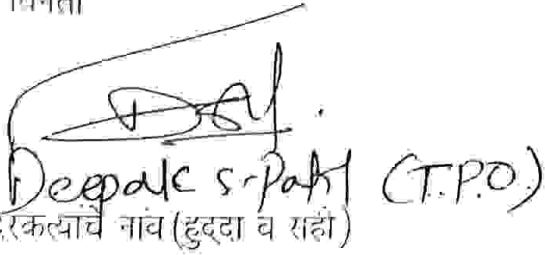 Deepak S. Patil (T.P.O.)
रकर्त्याचे नांव (हुद्दा व सही)